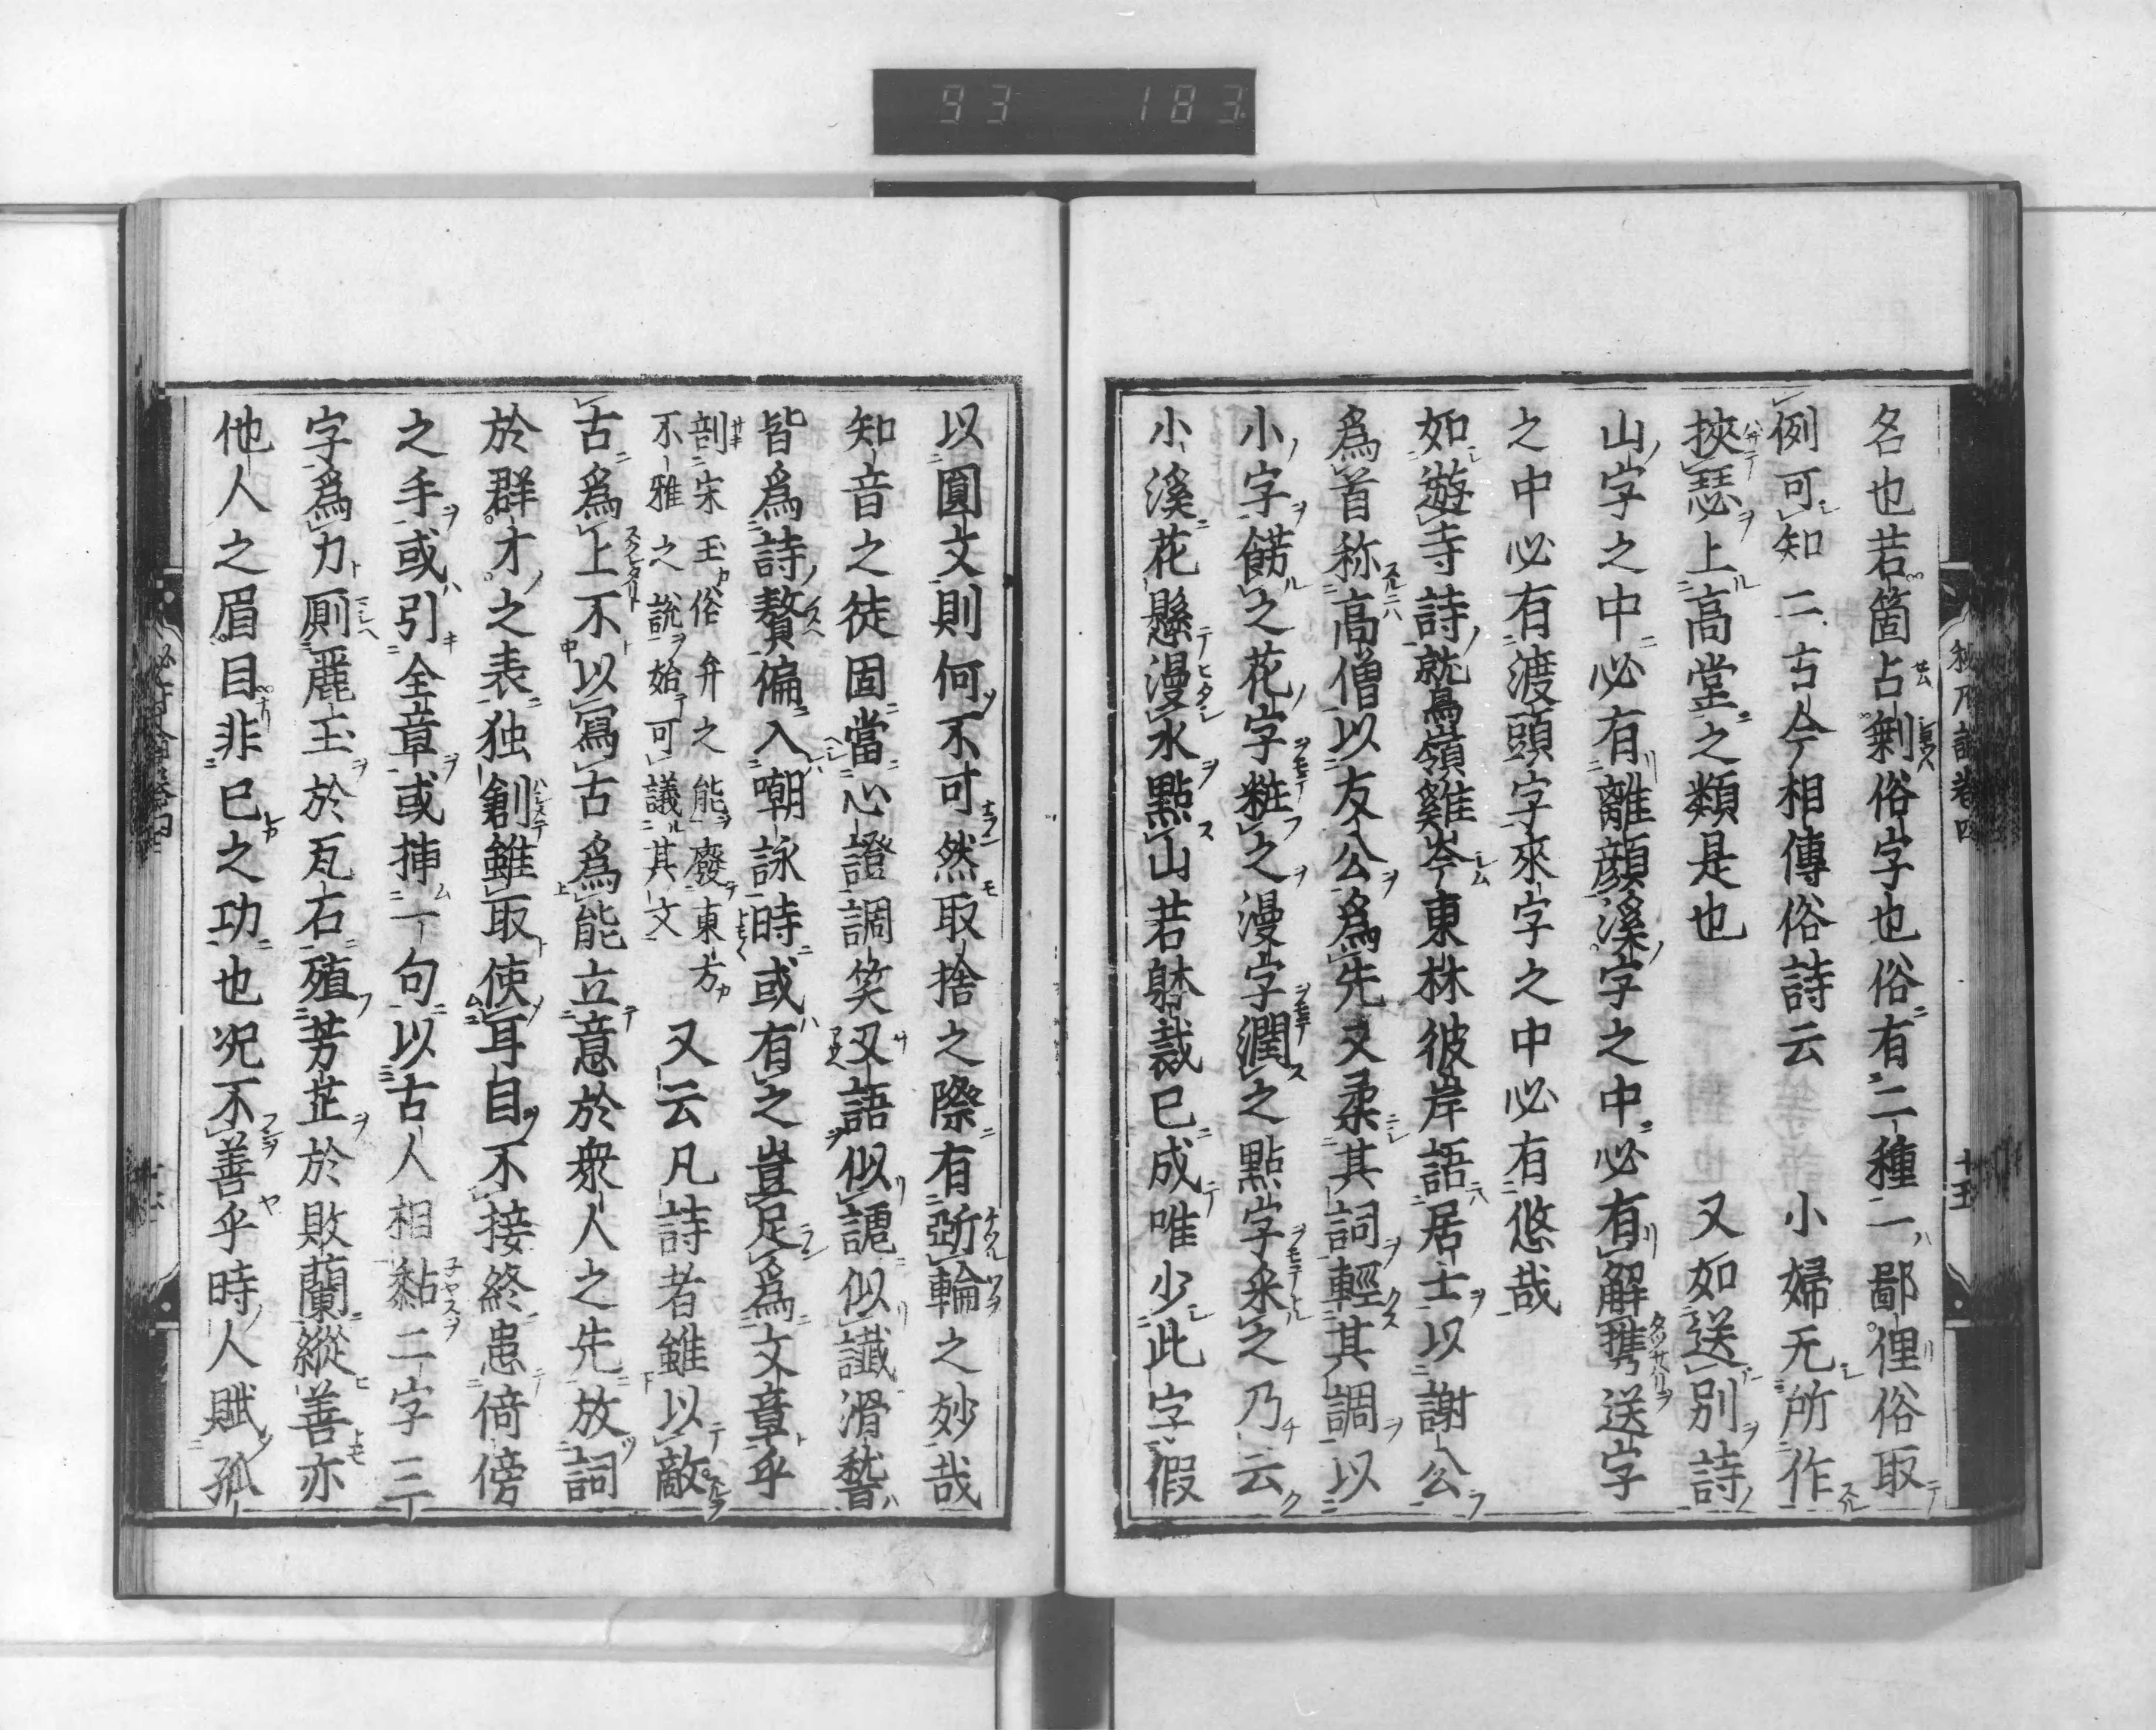 93 183
名也若箇占剰俗字也俗有二種一鄙俚俗取
例可知二古今相傳俗詩云 小婦无所作
挾瑟上高堂之類是也 又如送別詩
山字之中必有離顔溪字之中必有解携送字
之中必有渡頭字來字之中必有悠哉
如遊寺詩鷲嶺雞岑東林彼岸語居士以謝公
爲首称高僧以友公爲先又柔其詞輕其調以
小字餝之花字粧之漫字潤之點字采之乃云
小溪花懸漫水點山若體裁已成唯少此字假
以圓文則何不可然取捨之際有斵輪之妙哉
知音之徒固當心證調笑叉語似謔似讖滑稽
皆爲詩贅偏入嘲詠時或有之豈足爲文章乎
剖宋玉俗弁之能廢東方
不雅之説始可議其文
又云凡詩者雖以敵
古爲上不以寫古爲能立意於衆人之先放詞
於群才之表独創雖取使耳目不接終患倚傍
之手或引全章或挿一句以古人相黏二字三
字爲力厠麗玉於瓦石殖芳芷於敗蘭縱善亦
他人之眉目非已之功也况不善乎時人賦孤
十五